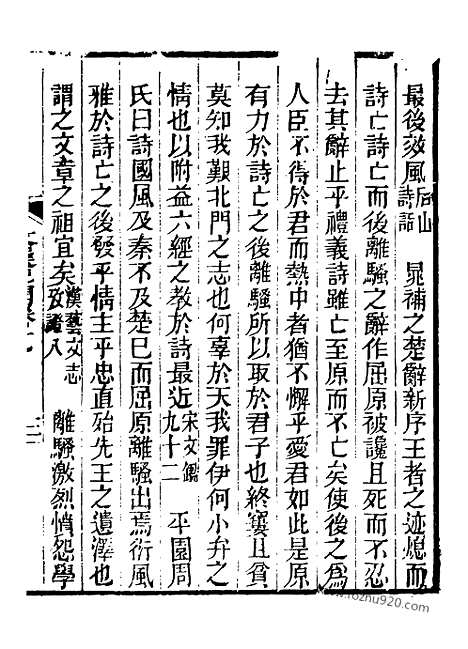 最後效風后山詩話　晁補之楚辭新序王者之迹熄而
詩亡詩亡而後離騷之辭作屈原被讒且死而不忍
去其辭止乎禮義詩雖亡至原而不亡矣使後之為
人臣不得於君而熱中者猶不懈乎愛君如此是原
有力於詩亡之後離騷所以取於君子也終窶且貧
莫知我艱北門之志也何辜於天我罪伊何小弁之
情也以附益六經之教於詩最近宋文鑑九十二　平園周
氏曰詩國風及秦不及楚巳而屈原離騷出焉衍風
雅於詩亡之後發乎情主乎忠直殆先王之遺澤也
謂之文章之祖宜矣漢藝文志攷證八　離騷激烈憤怨學
www.fozhu920.com